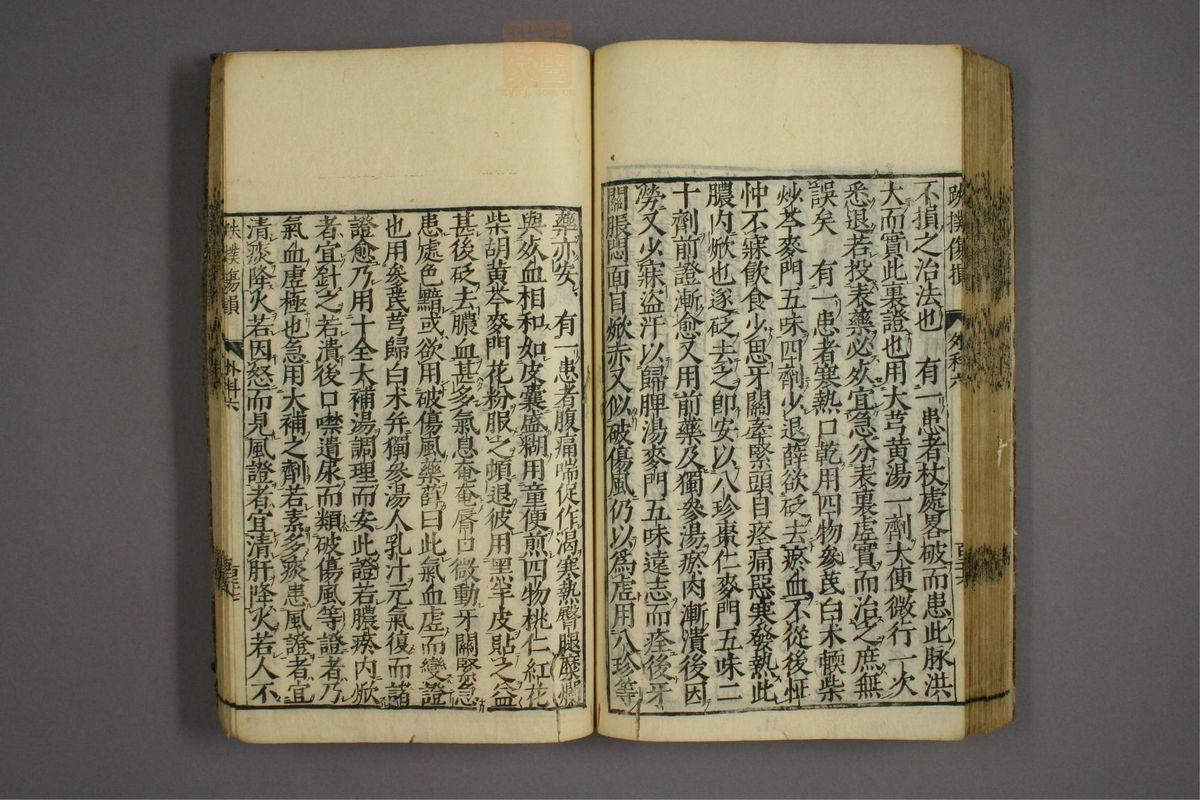 跌撲傷損
外科六
百三十六
不損之治法也 有一患者杖處畧破而患此脉洪
大而實此裏證也用大芎黃湯一劑大便微行一次
悉退若投表藥必死宜急分表裏虛實而治之庶無
誤矣 有一患者寒熱口乾用四物參芪白术輭柴
炒芩麥門五味四劑少退薛欲砭去瘀血不從後怔
忡不寐飲食少思牙關牽緊頭目疼痛惡寒發熱此
膿內焮也遂砭去之即安以八珍棗仁麥門五味二
十劑前證漸愈又用前藥及獨參湯瘀肉漸潰後因
勞又少寐盜汗以歸脾湯麥門五味遠志而痊後牙
關脹悶面目焮赤又似破傷風仍以爲虛用八珍等
藥亦安 有一患者腹痛喘促作渴寒熱臀腿糜爛
與死血相和如皮囊盛糊用童便煎四物桃仁紅花
柴胡黃芩麥門花粉服之頓退彼用黑羊皮貼之益
甚後砭去膿血甚多氣息奄奄脣口微動牙關緊急
患處色黯或欲用破傷風藥薛曰此氣血虛而變證
也用參芪芎歸白术弁獨參湯人乳汁元氣復而諸
證愈乃用十全大補湯調理而安此證若膿瘀內焮
者宜針之若潰後口噤遺尿而類破傷風等證者乃
氣血虛極也急用大補之劑若素多痰患風證者宜
清痰降火若因怒而見風證者宜清肝降火若人不
跌撲傷損
外科六